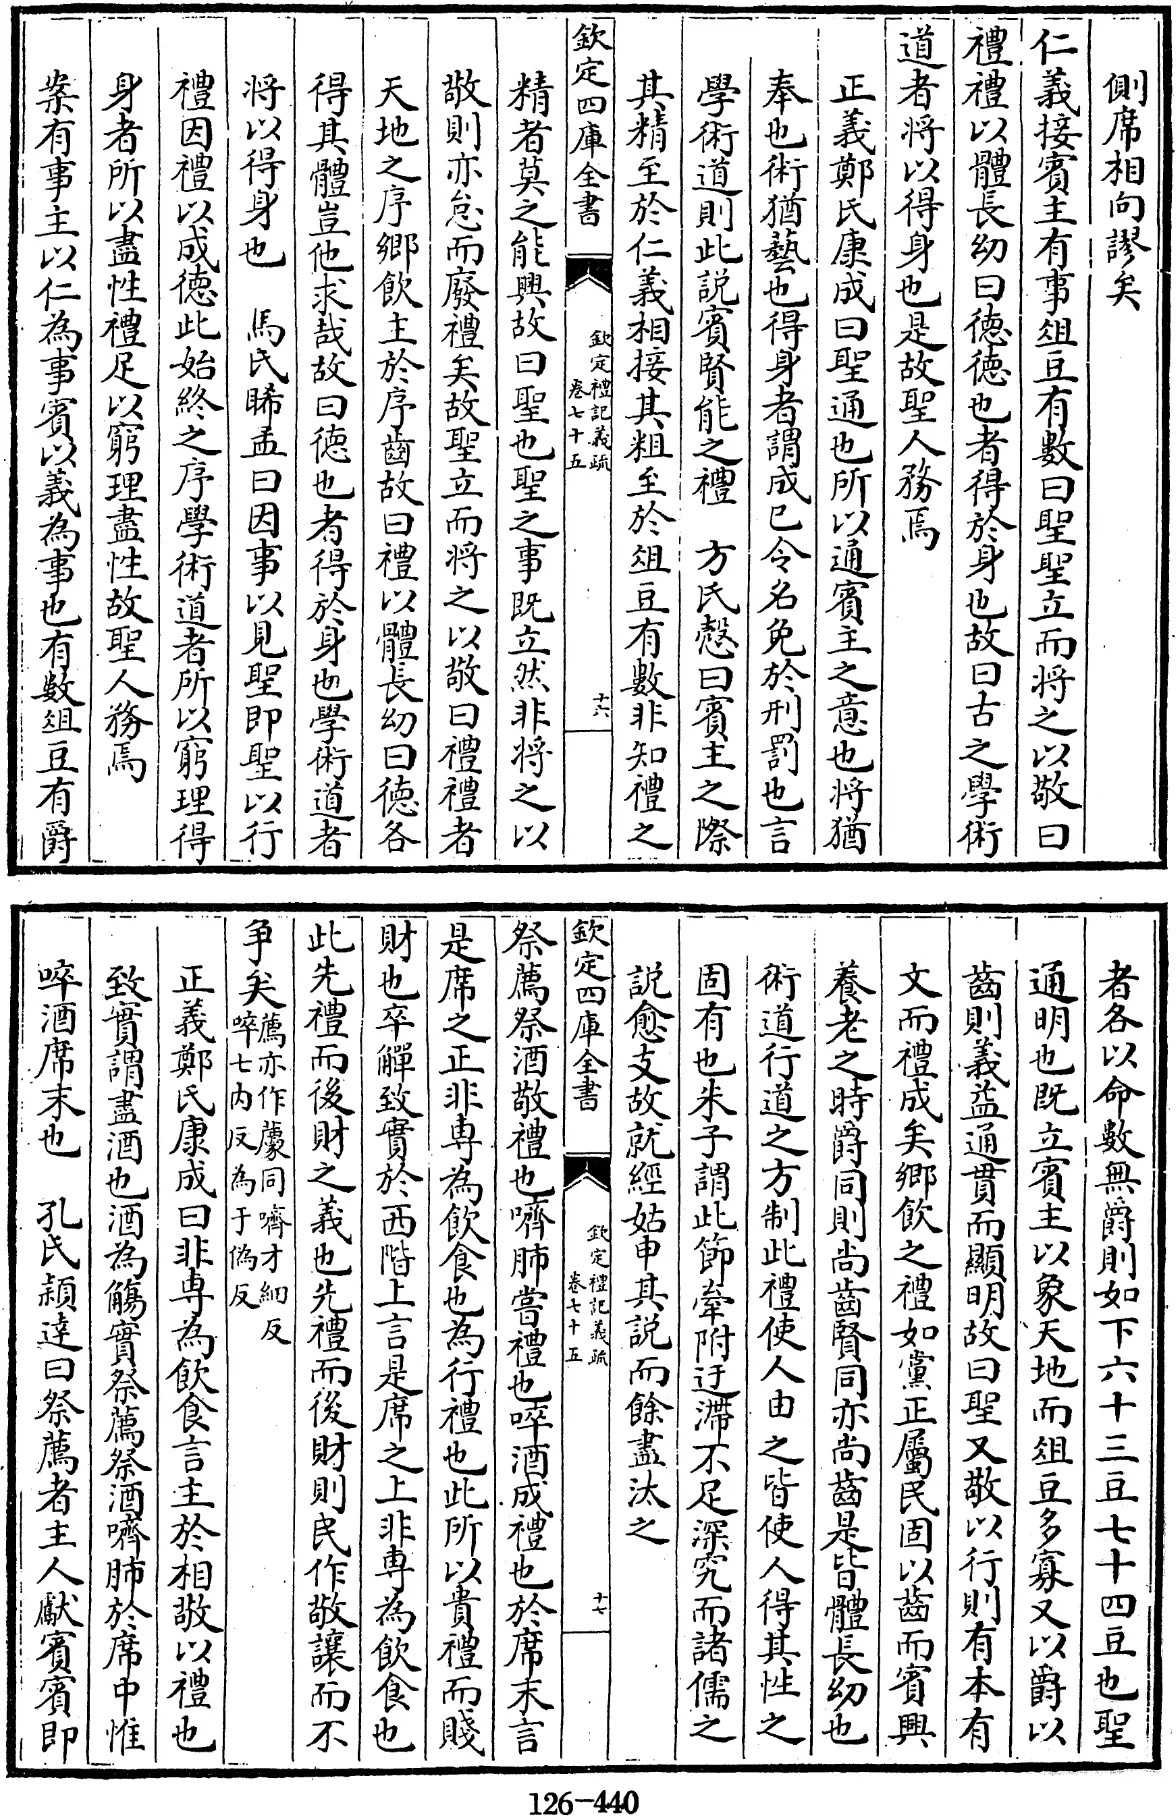 側席相向謬矣
仁義接賓主有事俎豆有數曰聖聖立而將之以敬曰
禮禮以體長幼曰德德也者得於身也故曰古之學術
道者將以得身也是故聖人務焉
正義鄭氏康成曰聖通也所以通賓主之意也將猶
奉也術猶藝也得身者謂成已令名免於刑罰也言
學術道則此説賓賢能之禮　方氏慤曰賓主之際
其精至於仁義相接其粗至於俎豆有數非知禮之
欽定四庫全書
欽定禮記義疏
卷七十五
十六
精者莫之能興故曰聖也聖之事既立然非將之以
敬則亦怠而廢禮矣故聖立而將之以敬曰禮禮者
天地之序鄉飲主於序齒故曰禮以體長幼曰德各
得其體豈他求哉故曰德也者得於身也學術道者
將以得身也　馬氏晞孟曰因事以見聖即聖以行
禮因禮以成德此始終之序學術道者所以窮理得
身者所以盡性禮足以窮理盡性故聖人務焉
案有事主以仁為事賓以義為事也有數俎豆有爵
者各以命數無爵則如下六十三豆七十四豆也聖
通明也既立賓主以象天地而俎豆多寡又以爵以
齒則義益通貫而顯明故曰聖又敬以行則有本有
文而禮成矣鄉飲之禮如黨正屬民固以齒而賓興
養老之時爵同則尚齒賢同亦尚齒是皆體長幼也
術道行道之方制此禮使人由之皆使人得其性之
固有也朱子謂此節牽附迂滯不足深究而諸儒之
説愈支故就經姑申其説而餘盡汰之
欽定四庫全書
欽定禮記義疏
卷七十五
十七
祭薦祭酒敬禮也嚌肺嘗禮也啐酒成禮也於席末言
是席之正非專為飲食也為行禮也此所以貴禮而賤
財也卒觶致實於西階上言是席之上非專為飲食也
此先禮而後財之義也先禮而後財則民作敬讓而不
爭矣
薦亦作薦同嚌才細反
啐七内反為于偽反
正義鄭氏康成曰非專為飲食言主於相敬以禮也
致實謂盡酒也酒為觴實祭薦祭酒嚌肺於席中惟
啐酒席末也　孔氏穎達曰祭薦者主人獻賓賓即
126-440